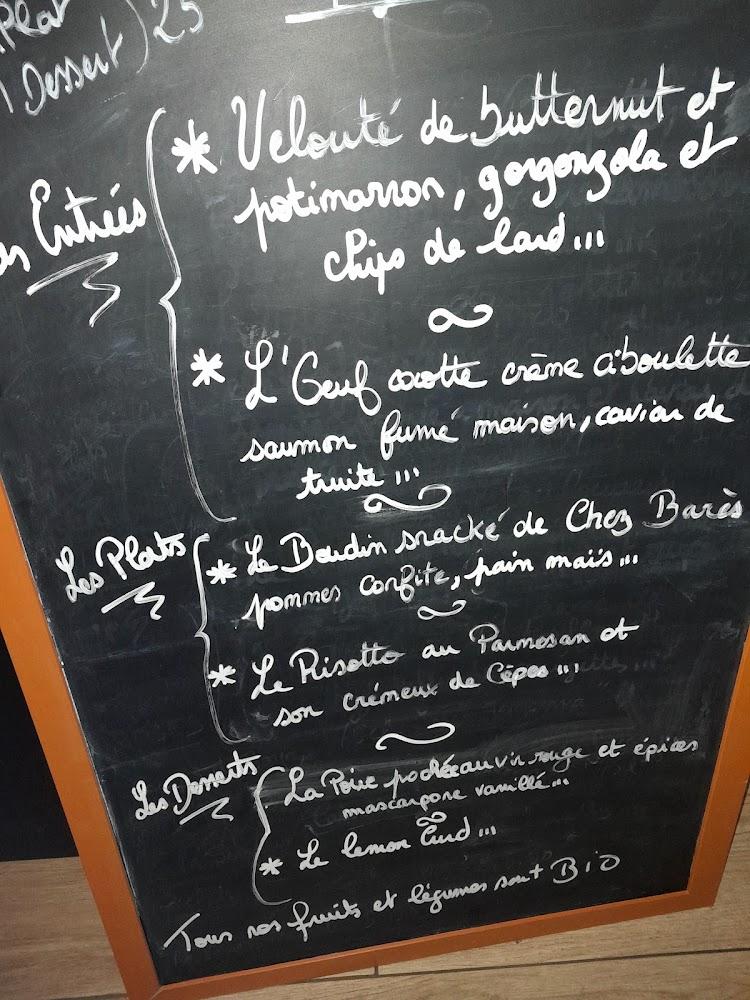 Plat
Dessert) 25
Entrées
* Velouté de butternut et
potimarron, gorgonzola et
chips de lard...
* L'Oeuf cocotte crème ciboulette
saumon fumé maison, caviar de
truite...
Les Plats
* Le Boudin snacké de Chez Barès
pommes confite, pain maïs...
* Le Risotto au Parmesan et
son crémeux de Cèpes...
Les Desserts
* La Poire pochée au vin rouge et épices
mascarpone vanillé...
* Le lemon Curd...
Tous nos fruits et légumes sont BiO